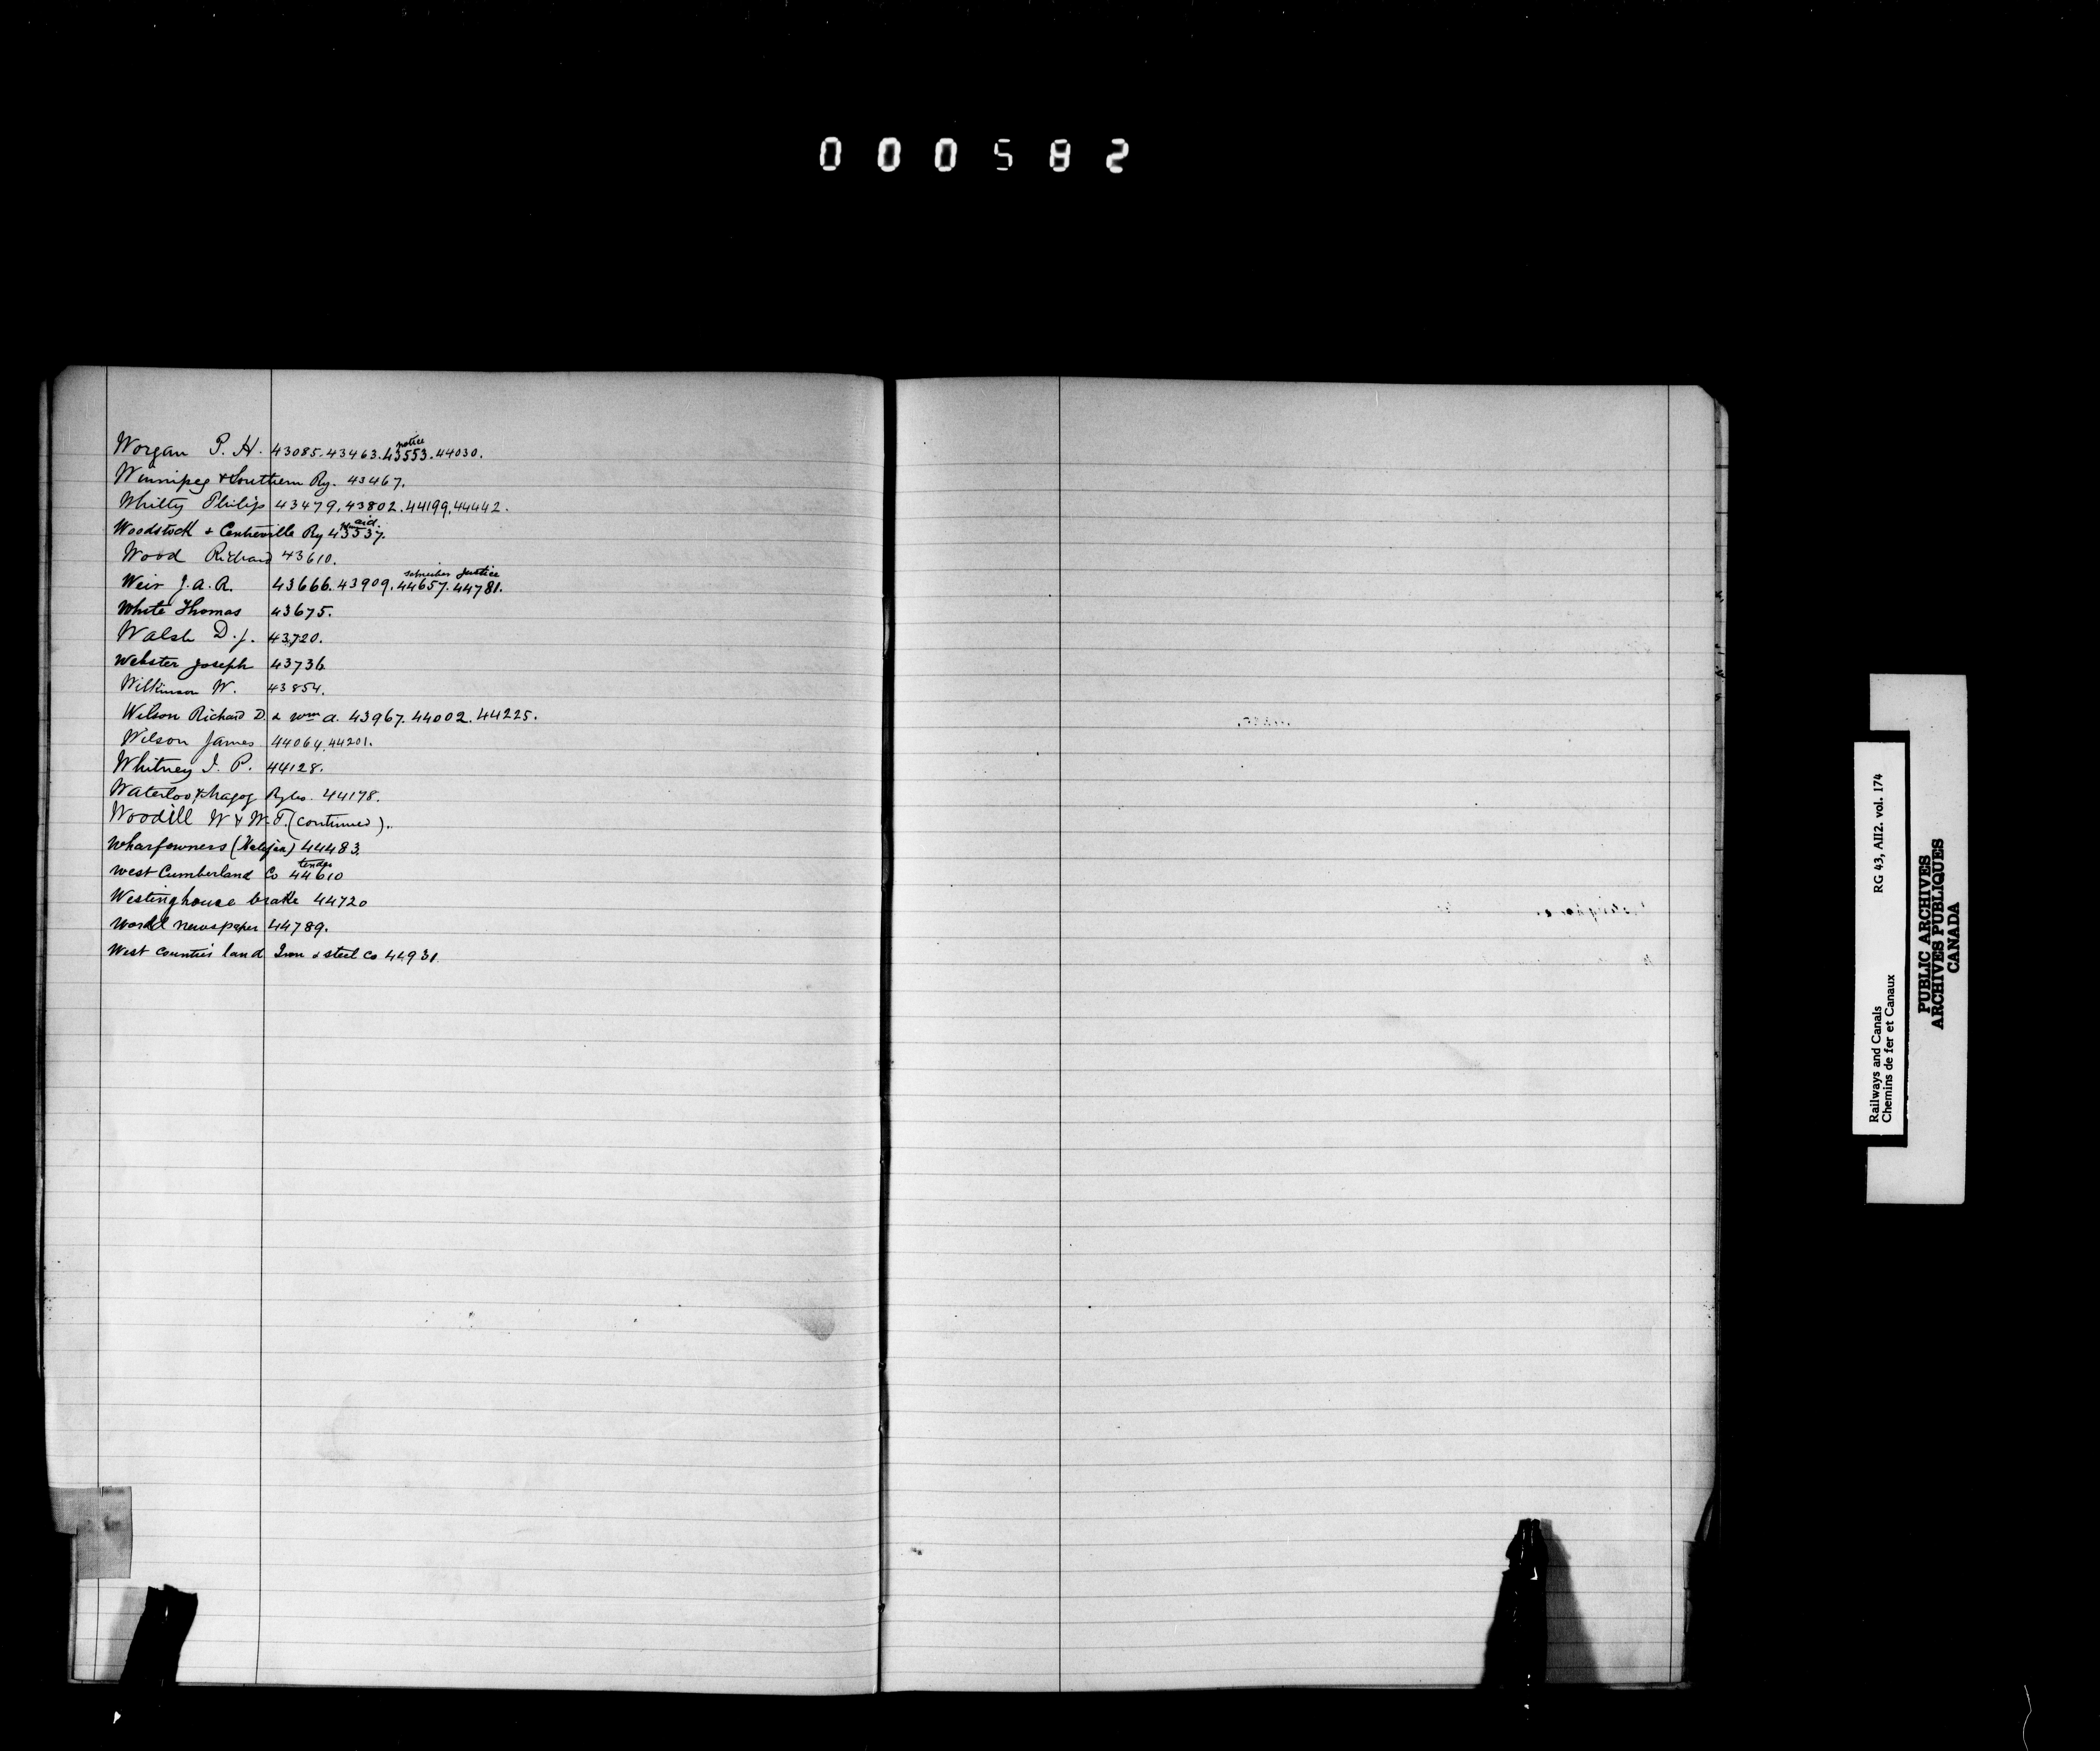 000582
Worgan P. H. 43085. 43463. 43553. 44030.
notice
Winnipeg & Southern Ry. 43467.
Whitty Philip 43479. 43802. 44199. 44442.
Woodstock & Centreville Ry 43537.
aid.
Wood Richard 43610.
Weir J. A. R. 43666. 43909. 44657. 44781.
schreiber Justice
White Thomas 43675.
Walsh D. J. 43720.
Webster Joseph 43736
Wilkinson W. 43854.
Wilson Richard D. & Wm A. 43967. 44002. 44225.
Wilson James 44064. 44201.
Whitney J. P. 44128.
Waterloo & Magog Ry Co. 44178.
Woodill W & W. T. (continued).
Wharfowners (Halifax) 44483.
West Cumberland Co 44610
tender
Westinghouse brake 44720
World newspaper 44789.
West Counties land Iron & steel Co 44931.
Railways and Canals RG 43, AII2. vol. 174
Chemins de fer et Canaux
PUBLIC ARCHIVES
ARCHIVES PUBLIQUES
CANADA